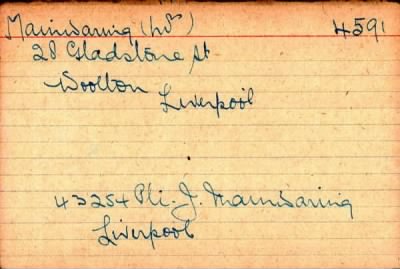 Mainwaring (Mr) 4591
28 Gladstone St
Woolton
Liverpool
43254 Pte. J. Mainwaring
Liverpool